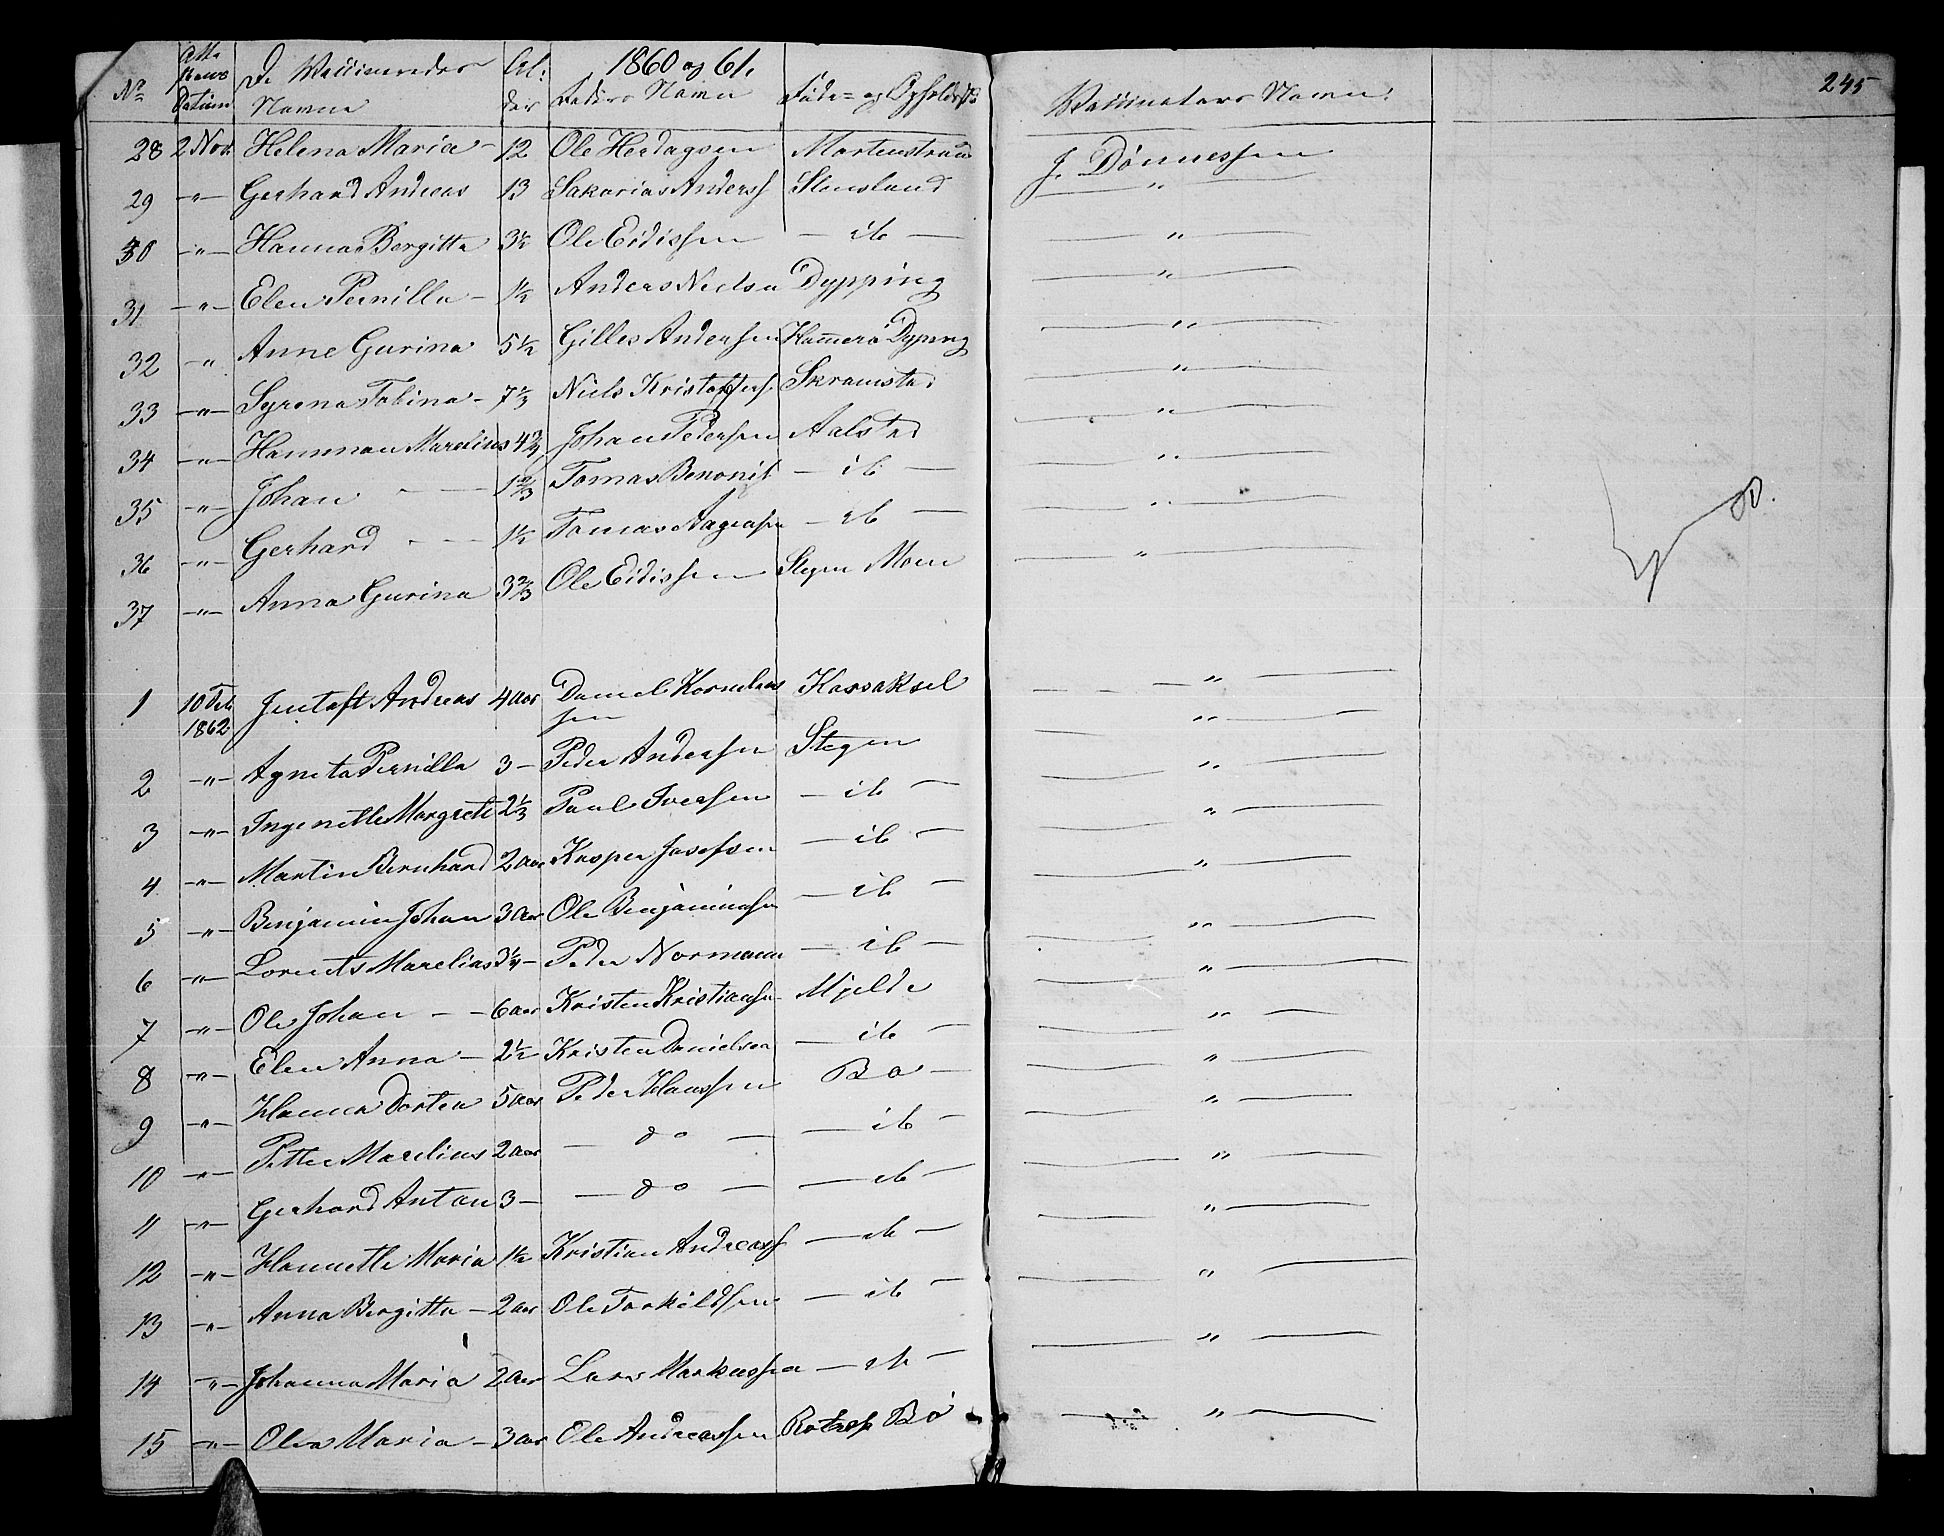 245
1860 og 61.
No Attestens Datum De Vaccineredes Navne Alder Faders Navn Føde- og Opholdssted Vaccinatørs Navn.
28 2 Nov. Helena Maria - 12 Ole Hordagsen J. Dønnessen
29 -"- Gerhard Andreas 13 Sakarias Anderss Stensland "
30 -"- Hanna Bergitta 3½ Ole Eidissen - ib - "
31 -"- Elen Pernilla - 1½ Anders Nielsen Dypping "
32 -" Anne Gurina 5½ Gilles Andersen Hammerø Dyping "
33 -"- Syrena Tobina - 7⅓ Niels Kristoffers Skramstad "
34 -"- Hanman Marelius 4¾ Johan Pedersen Aalstad "
35 -"- Johan - 1⅔ Tomas Benonis - ib - "
36 -"- Gerhard - 1½ Tomas - ib - "
37 -"- Anna Gurina 3⅔ Ole Eidissen Stegen Moen "
1 10 Feb. 1862 Andreas 4 aar Daniel Korneliussen "
2 -"- Agneta Pernilla 3 - Peder Andersen Stegen "
3 -"- Ingenette Margrete 2⅓ Paul Iversen - ib - "
4 -"- Martin Bernhard 2 aar Kasper Josefsen - ib - "
5 -"- Benjamin Johan 3 aar Ole Benjaminsen - ib - "
6 -"- Lorents Marelius 3¼ - Peder Normann - ib - "
7 -"- Ole Johan - - 6 aar Kristen Kristiansen Mjelde "
8 -"- Elen Anna - 2½ - Kristen Danielsen - ib - "
9 -"- Hanna Dortea 5 aar Peder Hanssen Bø - "
10 -"- Petter Marelius 2 aar - do - - ib - "
11 -"- Gerhard Anton 3 - - do - - ib - "
12 -"- Hannette Maria 1½ Kristian Andreass - ib - "
13 -"- Anna Bergitta - 2 aar Ole Torkildsen - ib - "
14 -"- Johanna Maria 2 aar Lars Markussen - ib - "
15 -"- Olea Maria - 3 aar Ole Andreassen Bø "